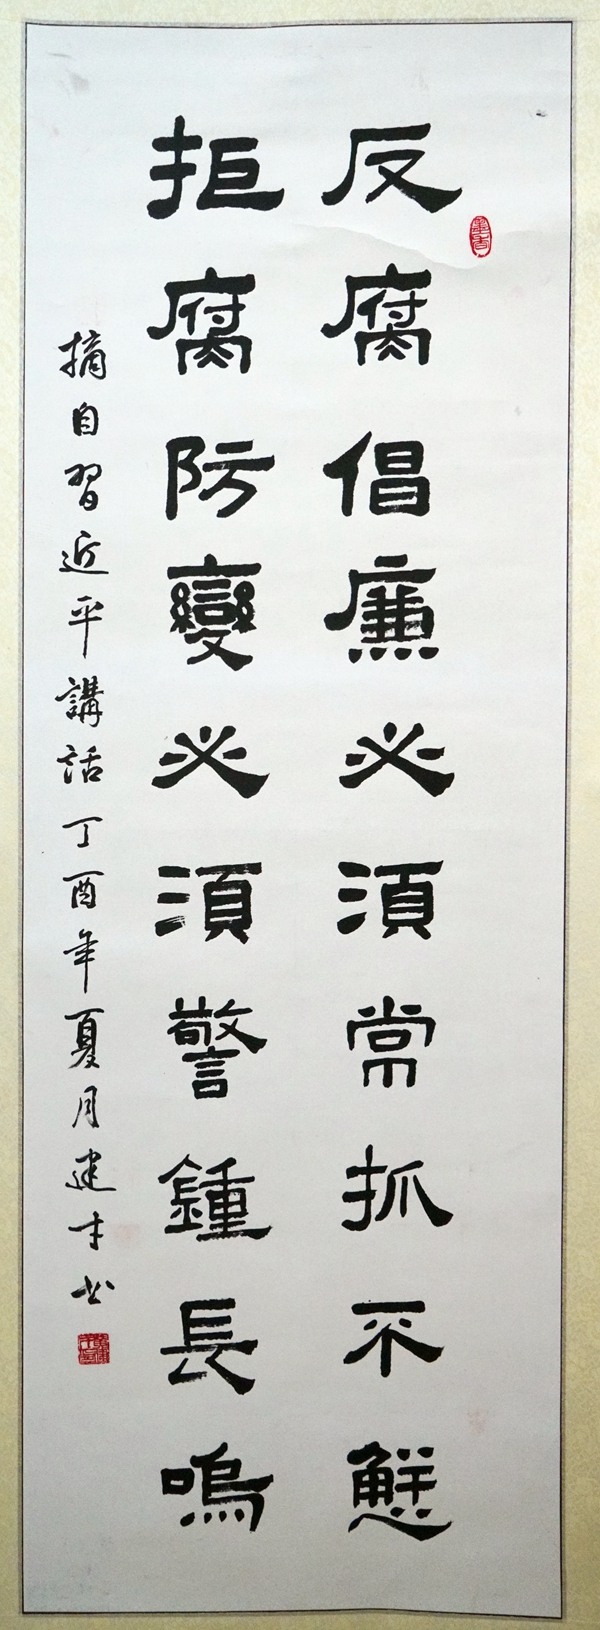 反腐倡廉必須常抓不懈
拒腐防變必須警鍾長鳴
摘自習近平講話丁酉年夏月建才书